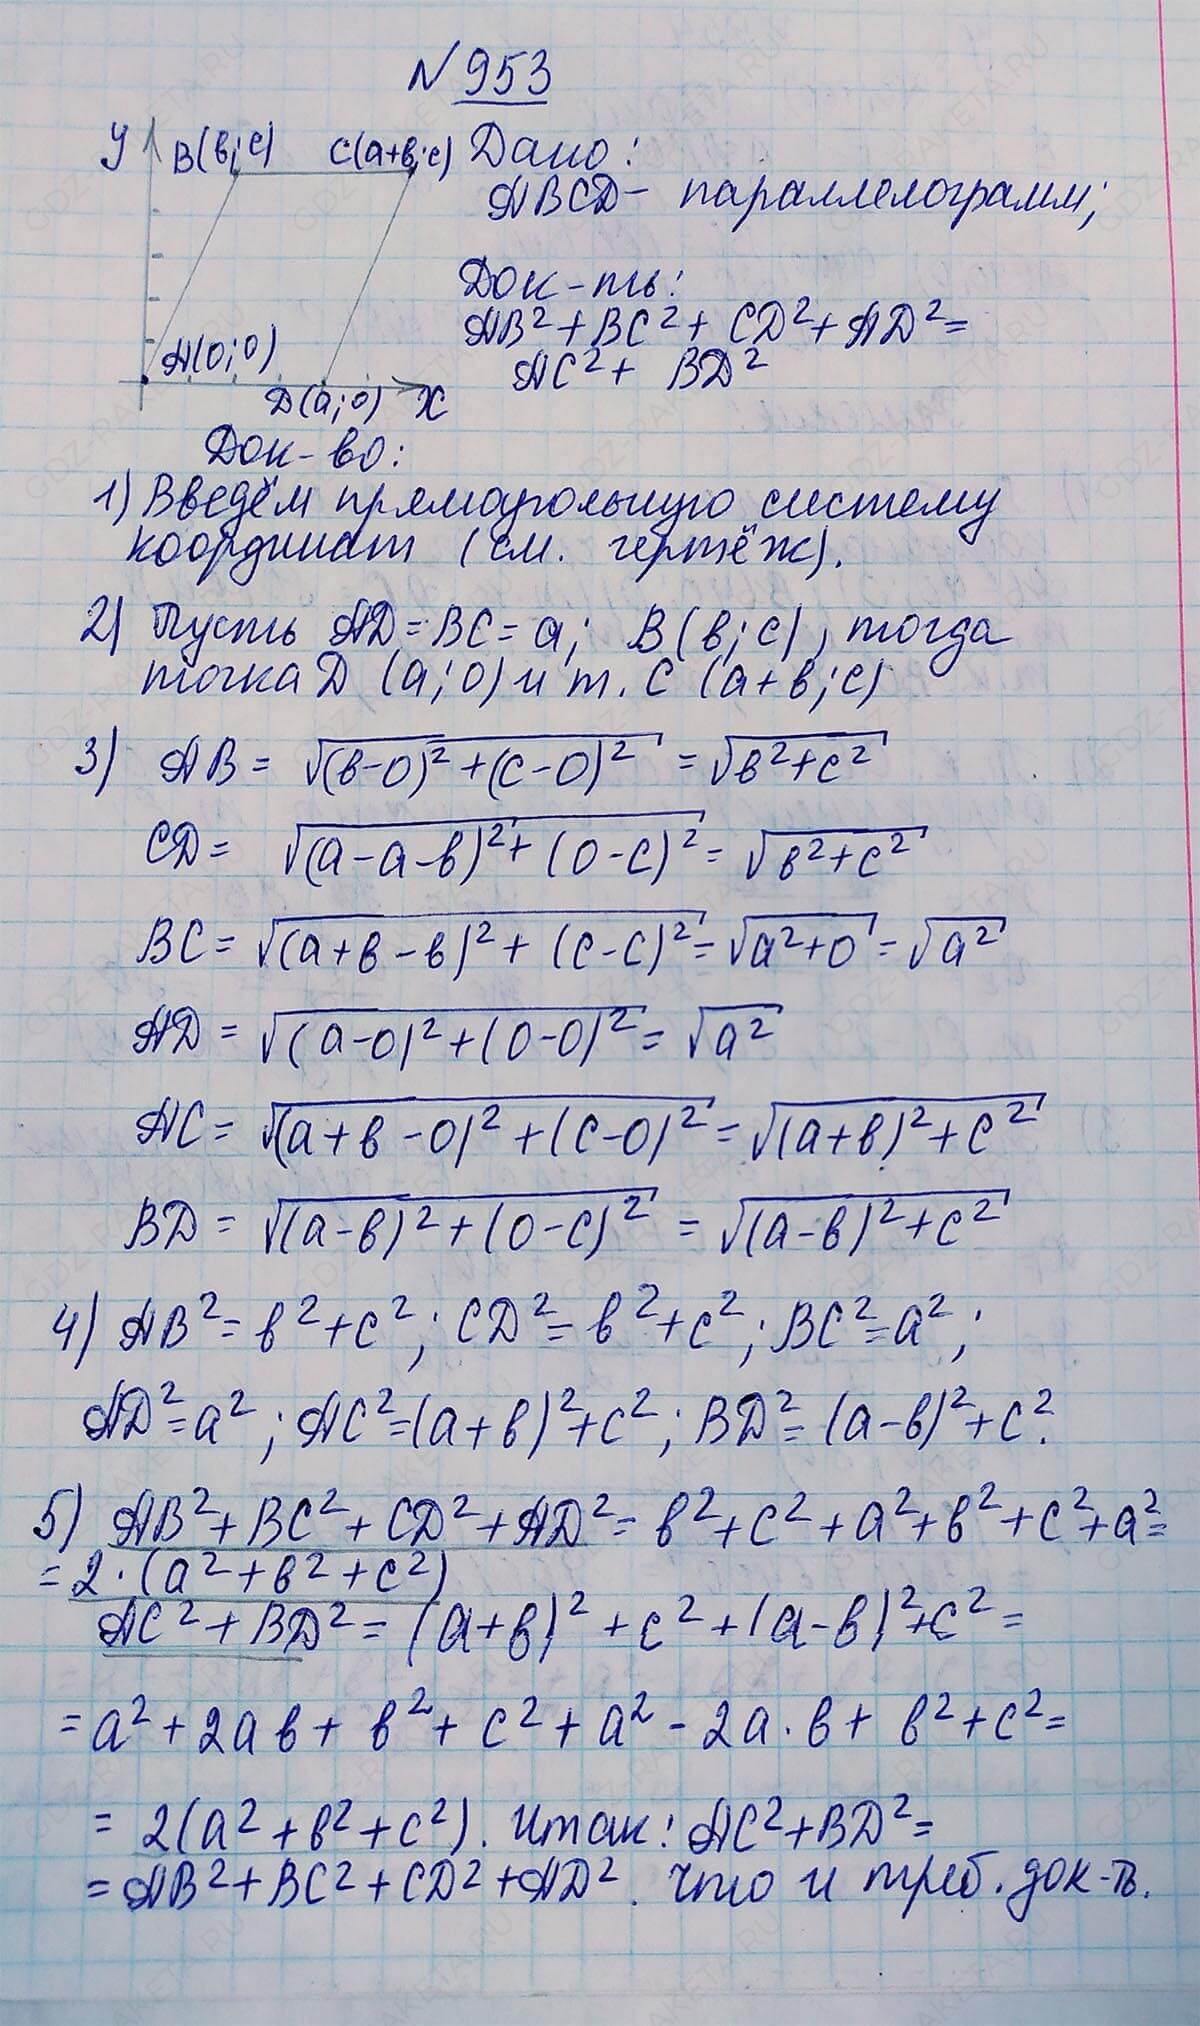 № 953
У В(в;с) С(а+в;с) Дано:
ABCD - параллелограмм;
Док-ть:
AB² + BC² + CD² + AD² =
AC² + BD²
A(0;0)
D(a;0) X
Док-во:
1) Введём прямоугольную систему
координат (см. чертёж).
2) Пусть AD = BC = a; B(в;с), тогда
точка D (a;0) и т. С (а+в;с)
3) AB = √((в-0)² + (с-0)²) = √(в²+с²)
CD = √((a-a-в)² + (0-c)²) = √(в²+с²)
BC = √((a+в-в)² + (c-c)²) = √(a²+0) = √a²
AD = √((a-0)² + (0-0)²) = √a²
AC = √((a+в-0)² + (c-0)²) = √((a+в)²+c²)
BD = √((a-в)² + (0-c)²) = √((a-в)²+c²)
4) AB² = в²+c²; CD² = в²+c²; BC² = a²;
AD² = a²; AC² = (a+в)²+c²; BD² = (a-в)²+c².
5) AB² + BC² + CD² + AD² = в²+c²+a²+в²+c²+a² =
= 2·(a²+в²+c²)
AC² + BD² = (a+в)² + c² + (a-в)² + c² =
= a² + 2aв + в² + c² + a² - 2a·в + в² + c² =
= 2(a²+в²+c²). Итак: AC²+BD² =
= AB² + BC² + CD² + AD². Что и треб. док-ть.